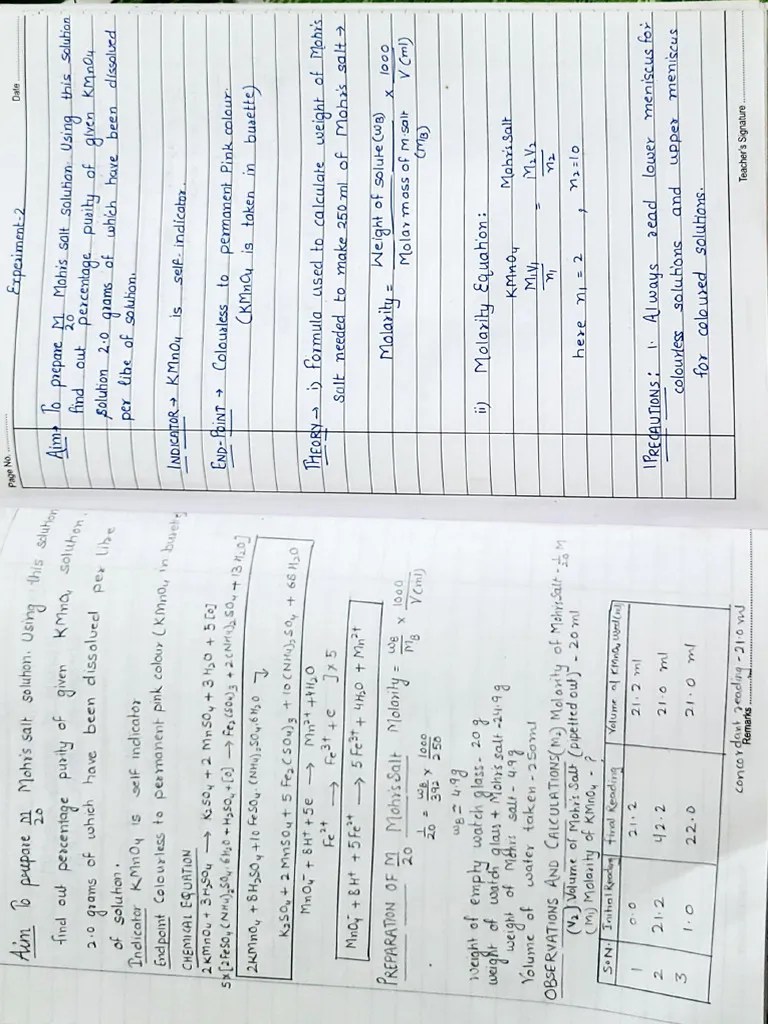 Aim To prepare M/20 Mohr's salt solution. Using this solution
find out percentage purity of given KMnO₄ solution.
2.0 grams of which have been dissolved per litre
of solution.
Indicator KMnO₄ is self indicator
Endpoint Colourless to permanent pink colour (KMnO₄ in burette
CHEMICAL EQUATION
2KMnO₄ + 3H₂SO₄ → K₂SO₄ + 2MnSO₄ + 3H₂O + 5[O]
5x[2FeSO₄(NH₄)₂SO₄.6H₂O + H₂SO₄ + [O] → Fe₂(SO₄)₃ + 2(NH₄)₂SO₄ + 13H₂O]
2KMnO₄ + 8H₂SO₄ + 10 FeSO₄.(NH₄)₂SO₄.6H₂O →
K₂SO₄ + 2MnSO₄ + 5Fe₂(SO₄)₃ + 10(NH₄)₂SO₄ + 68H₂O
MnO₄⁻ + 8H⁺ + 5e → Mn²⁺ + 4H₂O
Fe²⁺ → Fe³⁺ + e ] x 5
MnO₄⁻ + 8H⁺ + 5Fe²⁺ → 5Fe³⁺ + 4H₂O + Mn²⁺
PREPARATION OF M/20 Mohr's Salt Molarity = wB/MB x 1000/V(ml)
1/20 = wB/392 x 1000/250
wB = 4.9g
Weight of empty watch glass - 20 g
weight of watch glass + Mohr's salt - 24.9g
weight of Mohr's salt - 4.9g
Volume of water taken - 250ml
OBSERVATIONS AND CALCULATIONS (M₂) Molarity of Mohr's Salt - 1/20 M
(V₂) Volume of Mohr's Salt (pipetted out) - 20ml
(M₁) Molarity of KMnO₄ - ?
S.N. Initial Reading Final Reading Volume of KMnO₄ used(ml)
1 0.0 21.2 21.2 ml
2 21.2 42.2 21.0 ml
3 1.0 22.0 21.0 ml
concordant reading - 21.0 ml
Remarks
Page No.
Experiment-2
Date
Aim→ To prepare M/20 Mohr's salt solution. Using this solution
find out percentage purity of given KMnO₄
solution 2.0 grams of which have been dissolved
per litre of solution.
INDICATOR → KMnO₄ is self-indicator.
END-POINT → Colourless to permanent Pink colour.
(KMnO₄ is taken in burette)
THEORY → i) Formula used to calculate weight of Mohr's
salt needed to make 250ml of Mohr's salt →
Molarity = Weight of solute(wB)/Molar mass of M.salt (MB) x 1000/V(ml)
ii) Molarity Equation:
KMnO₄ Mohr's salt
M₁V₁/n₁ = M₂V₂/n₂
here n₁=2 , n₂=10
PRECAUTIONS: 1. Always read lower meniscus for
colourless solutions and upper meniscus
for coloured solutions.
Teacher's Signature